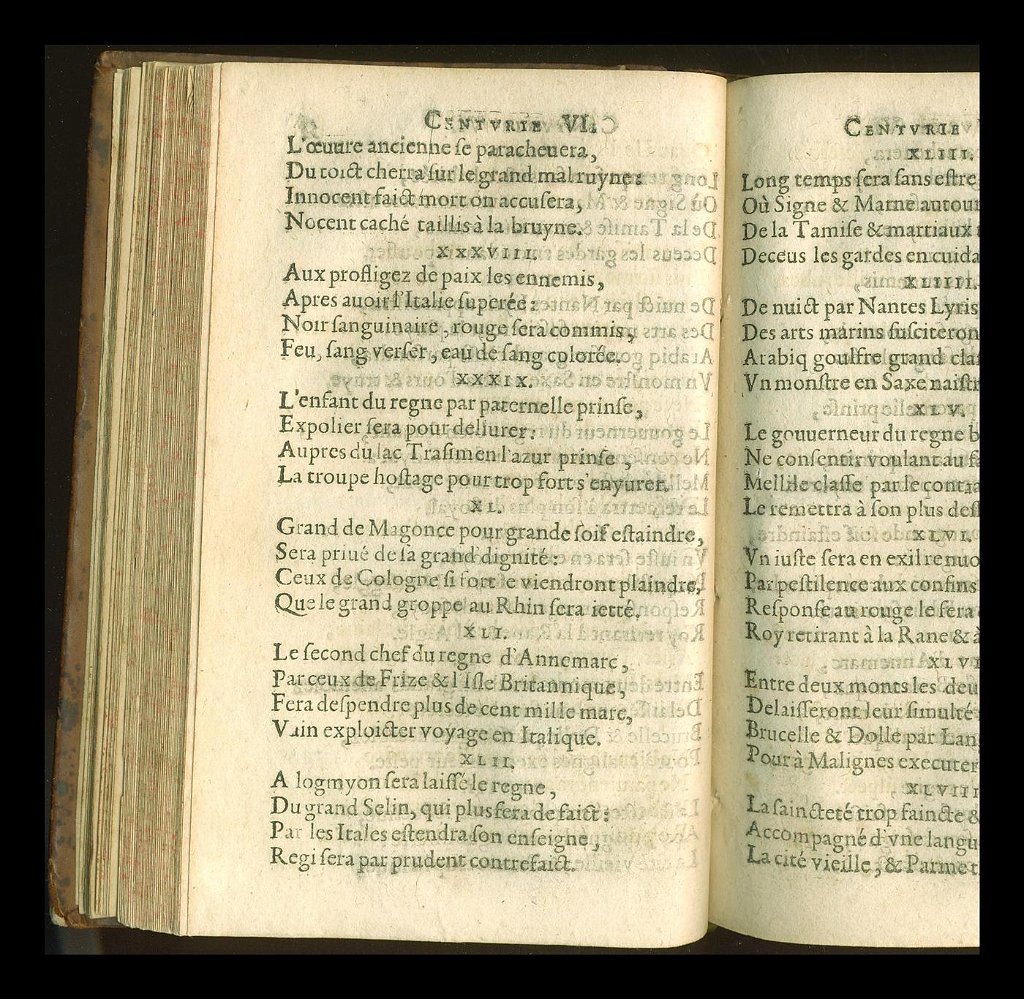 CENTVRIE VI.
L'œuure ancienne ſe paracheuera,
Du toict cherra ſur le grand mal ruyne:
Innocent faict mort on accuſera,
Nocent caché taillis à la bruyne.
XXXVIII.
Aux profligez de paix les ennemis,
Apres auoir l'Italie ſuperée:
Noir ſanguinaire, rouge ſera commis,
Feu, ſang verſer, eau de ſang colorée.
XXXIX.
L'enfant du regne par paternelle prinſe,
Expolier ſera pour deliurer:
Aupres du lac Traſimen l'azur prinſe,
La troupe hoſtage pour trop fort s'enyurer.
XL.
Grand de Magonce pour grande ſoif eſtaindre,
Sera priué de ſa grand dignité:
Ceux de Cologne ſi fort le viendront plaindre,
Que le grand groppe au Rhin ſera ietté.
XLI.
Le ſecond chef du regne d'Annemarc,
Par ceux de Frize & l'Iſle Britannique,
Fera deſpendre plus de cent mille marc,
Vain exploicter voyage en Italique.
XLII.
A logmyon ſera laiſſé le regne,
Du grand Selin, qui plus fera de faict:
Par les Itales eſtendra ſon enſeigne,
Regi ſera par prudent contrefaict.
CENTVRIE
XLIII.
Long temps ſera ſans eſtre
Où Signe & Marne autour
De la Tamiſe & martiaux
Deceus les gardes en cuida
XLIIII.
De nuict par Nantes Lyris
Des arts marins ſuſciteron
Arabiq goulfre grand cla
Vn monſtre en Saxe naiſtr
XLV.
Le gouuerneur du regne b
Ne conſentir voulant au f
Mellile claſſe par le contra
Le remettra à ſon plus deſ
XLVI.
Vn iuſte ſera en exil renuo
Par peſtilence aux confins
Reſponſe au rouge le fera
Roy retirant à la Rane & à
XLVI
Entre deux monts les deu
Delaiſſeront leur ſimulté
Brucelle & Dolle par Lan
Pour à Malignes executer
XLVIII
La ſaincteté trop faincte &
Accompagné d'vne langu
La cité vieille, & Parme t